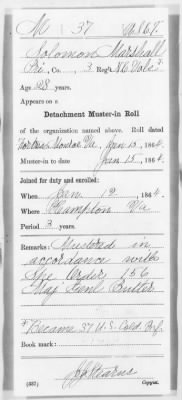 M 37 U.S.C.T.
Solomon Marshall
Pvt, Co. 3 Reg't N.C. Vols*
Age 28 years.
Appears on a
Detachment Muster-in Roll
of the organization named above. Roll dated
Fortress Monroe Va, Jan 15, 1864.
Muster-in to date Jan 15, 1864.
Joined for duty and enrolled:
When Jan 12, 1864.
Where Hampton Va
Period 3 years.
Remarks: Mustered in
accordance with
Spe Order 156
Maj Genl Butler
*Became 37 U.S. Cold. Inf.
Book mark:
Kearns
(337) Copyist.